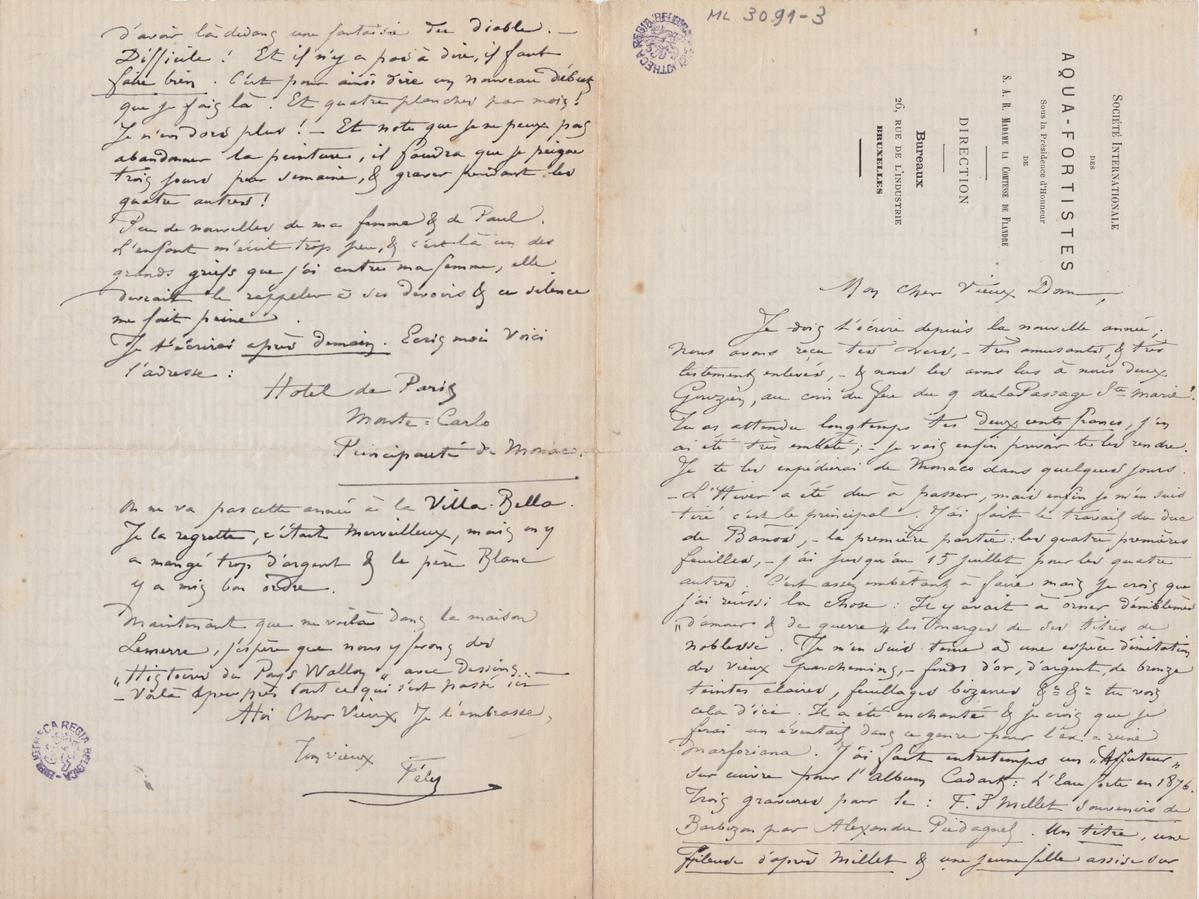 ML 3091-3
SOCIÉTÉ INTERNATIONALE
DES
AQUA-FORTISTES
Sous la Présidence d'Honneur
DE
S. A. R. MADAME LA COMTESSE DE FLANDRE
DIRECTION
Bureaux
26, RUE DE L'INDUSTRIE
BRUXELLES
Mon cher Vieux Dom,
Je dois t'écrire depuis la nouvelle année;
nous avons reçu tes vers, - très amusants, & très
lestement enlevés, - & nous les avons lus à nous deux
Gouzien, au coin du feu du 9 de la Passage Ste marie!
Tu as attendu longtemps tes deux cents francs, j'en
ai été très embêté; - je vais enfin pouvoir te les rendre.
Je te les expédierai de Monaco dans quelques jours.
- L'Hiver a été dur à passer, mais enfin je m'en suis
tiré c'est le principal. J'ai fait le travail du duc
de Banos, - la première partie: les quatre premières
feuilles, - j'ai jusqu'au 15 juillet pour les quatre
autres. C'est assez embêtant à faire mais je crois que
j'ai réussi la chose: Il y avait à orner d'emblèmes
„d'amour & de guerre„ les marges de ses titres de
noblesse. Je m'en suis tenu à une espèce d'imitation
des vieux parchemins, - fonds d'or, d'argent, de bronze
teintes claires, feuillages bizarres &a &a tu vois
cela d'ici. Il a été enchanté & je crois que je
ferai un éventail dans ce genre pour l'ex: reine
Marforiana. J'ai fait entretemps un „Affuteur„
sur cuivre pour l'album Cadart: L'Eau forte en 1876.
Trois gravures pour le: F. S Millet Souvenirs de
Barbizon par Alexandre Piédagnel. Un titre, une
fileuse d'après Millet & une jeune fille assise sur
d'avoir là dedans une fantaisie du diable. -
Difficile! Et il n'y a pas à dire, il faut
faire bien. C'est pour ainsi dire un nouveau début
que je fais là. Et quatre planches par mois!
Je n'en dors plus! - Et note que je ne peux pas
abandonner la peinture, il faudra que je peigne
trois jours par semaine, & graver pendant les
quatre autres!
Peu de nouvelles de ma femme & de Paul.
L'enfant m'écrit trop peu, & c'est là un des
grands griefs que j'ai contre ma femme, elle
devrait le rappeler à ses devoirs & ce silence
me fait peine.
Je t'écrirai après demain. Ecris moi voici
l'adresse:
Hotel de Paris
Monte-Carlo
Principauté de Monaco.
On ne va pas cette année à la Villa-Bella.
Je la regrette, c'était merveilleux, mais on y
a mangé trop d'argent & le père Blanc
y a mis bon ordre.
Maintenant que me voilà dans la maison
Lemerre, j'espère que nous y ferons des
„Histoires du Pays Wallon„ avec dessins. -
- Voilà à peu près tout ce qui s'est passé ici -
A toi Cher Vieux Je t'embrasse,
Ton vieux
Fély